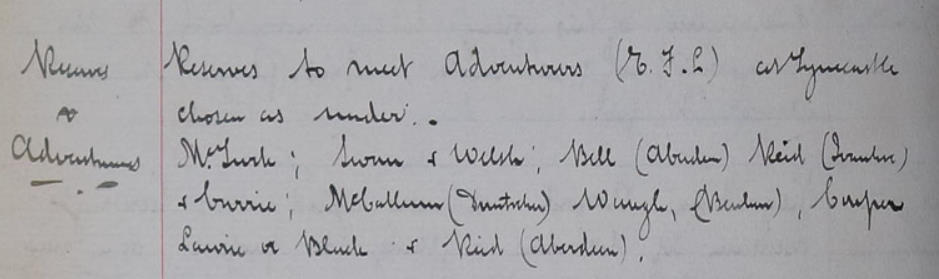 Reserves
v
Adventurers
Reserves to meet Adventurers (E. F. L) at Tynecastle
chosen as under.
McTurk; Swan & Welsh; Bell (Aberdeen) Reid
& Currie; McCallum Waugh, Cowper
Lawrie or Black & Reid (Aberdeen).